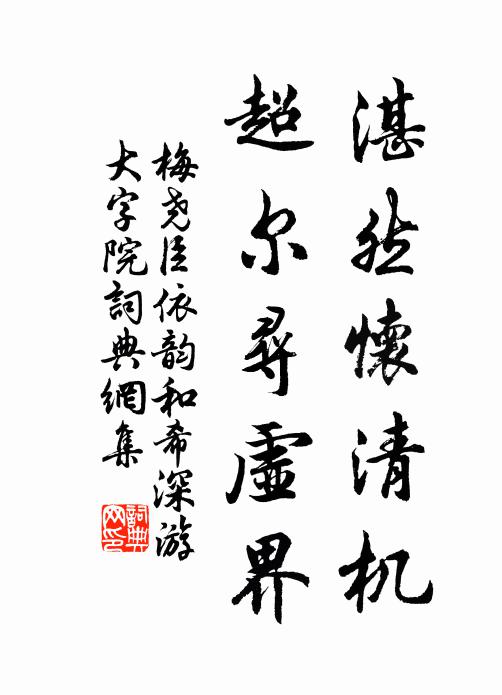 湛然懷清机
超尔尋虛界
梅尧臣依韵和希深游
大字院詞典網集
詞典网印